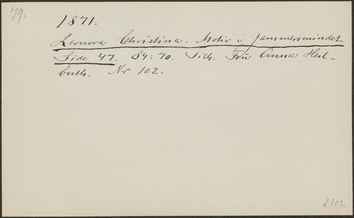 1871.
Leonora Christina. Motiv. Jammersmindet
Side 47. 84 : 70. Tilh. Frü Anna Heil-
buth. Nr 102.